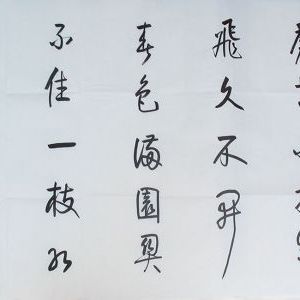 飛久不開
春色滿園關
不住一枝紅